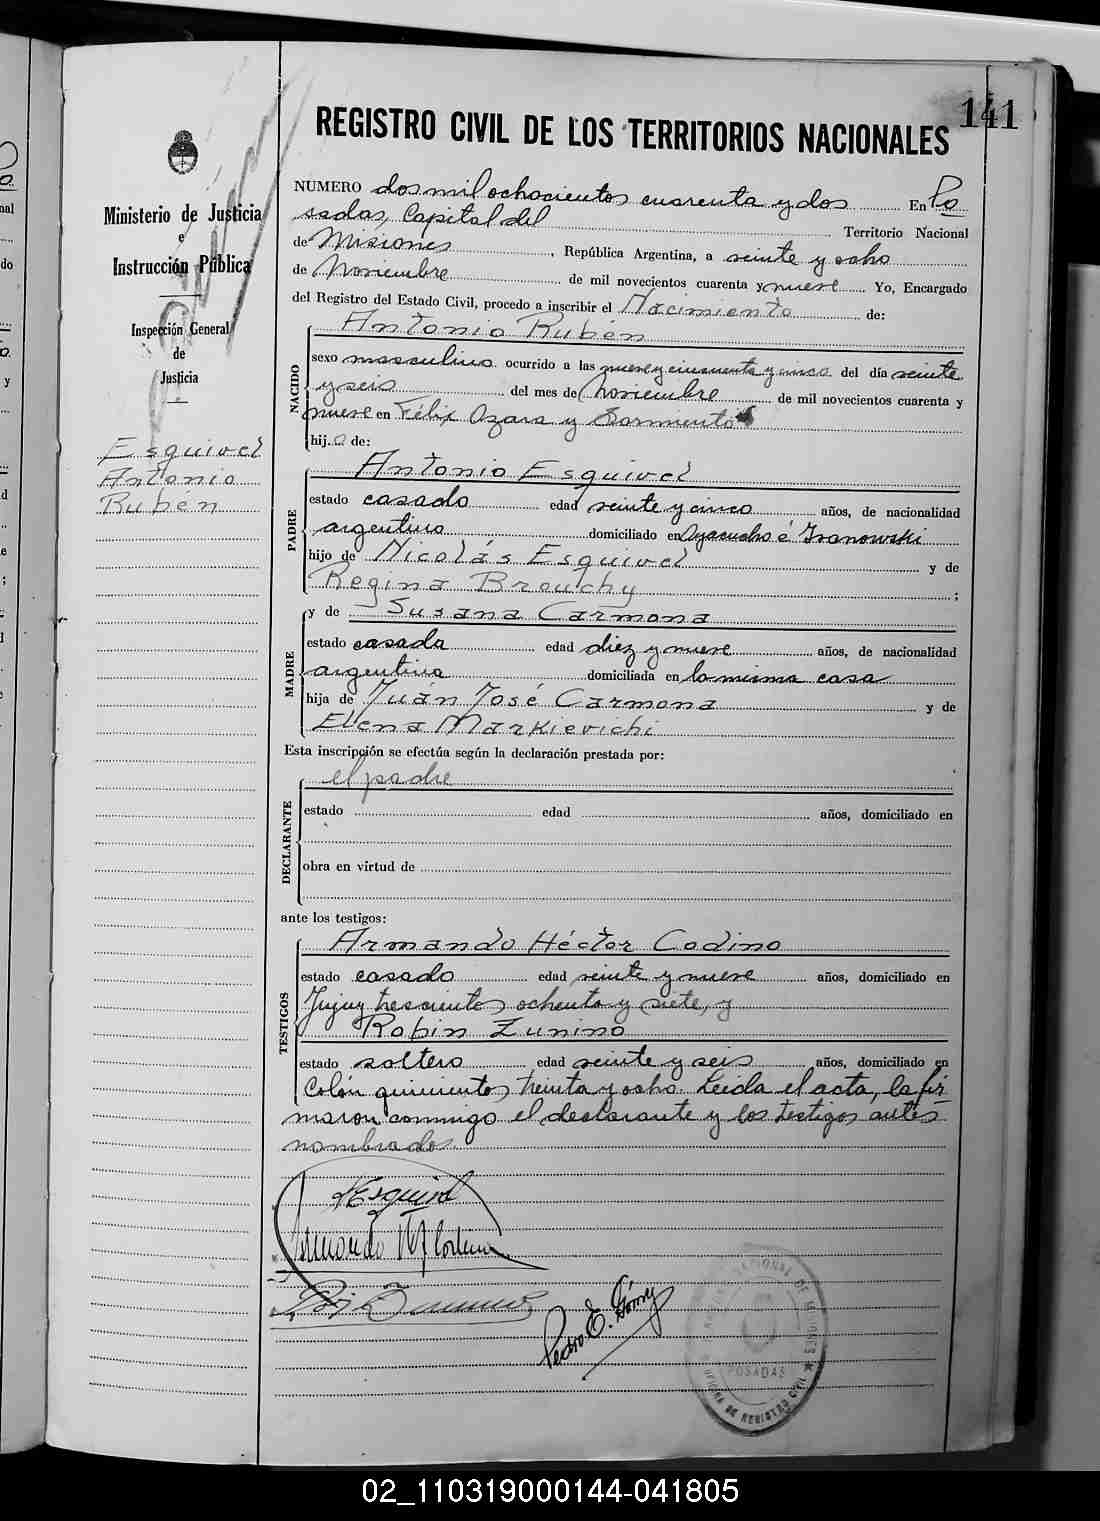 141
REGISTRO CIVIL DE LOS TERRITORIOS NACIONALES
Ministerio de Justicia
e
Instrucción Pública
Inspección General
de
Justicia
Esquivel
Antonio
Rubén
NUMERO dos mil ochocientos cuarenta y dos En Po
sadas, Capital del Territorio Nacional
de Misiones, República Argentina, a veinte y ocho
de Noviembre de mil novecientos cuarenta y nueve Yo, Encargado
del Registro del Estado Civil, procedo a inscribir el Nacimiento de:
Antonio Rubén
NACIDO
sexo masculino ocurrido a las nueve y cincuenta y cinco del día veinte
y seis del mes de Noviembre de mil novecientos cuarenta y
nueve en Félix Azara y Sarmiento
hijo de:
Antonio Esquivel
PADRE
estado casado edad veinte y cinco años, de nacionalidad
argentino domiciliado en Ayacucho é Ivanowski
hijo de Nicolás Esquivel y de
Regina Brouchy;
y de Susana Carmona
MADRE
estado casada edad diez y nueve años, de nacionalidad
argentina domiciliada en la misma casa
hija de Juan José Carmona y de
Elena Markievichi
Esta inscripción se efectúa según la declaración prestada por:
el padre
DECLARANTE
estado edad años, domiciliado en
obra en virtud de
ante los testigos:
Armando Héctor Codino
TESTIGOS
estado casado edad veinte y nueve años, domiciliado en
Jujuy trescientos ochenta y siete, y
Robin Zunino
estado soltero edad veinte y seis años, domiciliado en
Colón quinientos treinta y ocho. Leida el acta, la fir-
maron conmigo el declarante y los testigos antes
nombrados.
AEsquivel
Armando H Codino
Pedro E. Gómez
POSADAS
OFICINA DE REGISTRO CIVIL
02_110319000144-041805